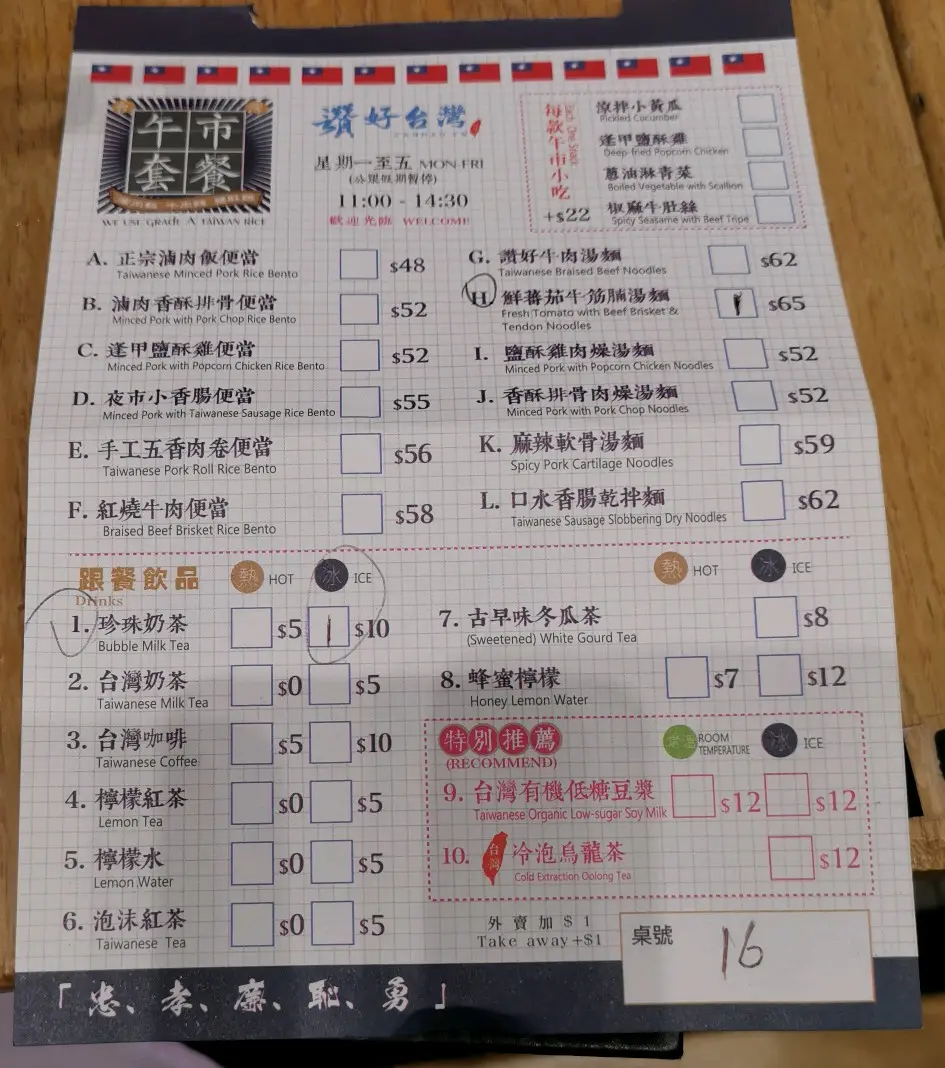 午市
套餐
WE USE GRADE A TAIWAN RICE
讚好台灣
星期一至五 MON-FRI
(公眾假期暫停)
11:00 - 14:30
歡迎光臨 WELCOME
每款午市小吃
+$22
涼拌小黃瓜
Pickled Cucumber
逢甲鹽酥雞
Deep-fried Popcorn Chicken
蔥油淋青菜
Boiled Vegetable with Scallion
椒麻牛肚絲
Spicy Seasame with Beef Tripe
A. 正宗滷肉飯便當 $48
Taiwanese Minced Pork Rice Bento
B. 滷肉香酥排骨便當 $52
Minced Pork with Pork Chop Rice Bento
C. 逢甲鹽酥雞便當 $52
Minced Pork with Popcorn Chicken Rice Bento
D. 夜市小香腸便當 $55
Minced Pork with Taiwanese Sausage Rice Bento
E. 手工五香肉卷便當 $56
Taiwanese Pork Roll Rice Bento
F. 紅燒牛肉便當 $58
Braised Beef Brisket Rice Bento
G. 讚好牛肉湯麵 $62
Taiwanese Braised Beef Noodles
H. 鮮蕃茄牛筋腩湯麵 1 $65
Fresh Tomato with Beef Brisket &
Tendon Noodles
I. 鹽酥雞肉燥湯麵 $52
Minced Pork with Popcorn Chicken Noodles
J. 香酥排骨肉燥湯麵 $52
Minced Pork with Pork Chop Noodles
K. 麻辣軟骨湯麵 $59
Spicy Pork Cartilage Noodles
L. 口水香腸乾拌麵 $62
Taiwanese Sausage Slobbering Dry Noodles
跟餐飲品 熱 HOT 冰 ICE
Drinks
1. 珍珠奶茶 $5 1 $10
Bubble Milk Tea
2. 台灣奶茶 $0 $5
Taiwanese Milk Tea
3. 台灣咖啡 $5 $10
Taiwanese Coffee
4. 檸檬紅茶 $0 $5
Lemon Tea
5. 檸檬水 $0 $5
Lemon Water
6. 泡沫紅茶 $0 $5
Taiwanese Tea
熱 HOT 冰 ICE
7. 古早味冬瓜茶 $8
(Sweetened) White Gourd Tea
8. 蜂蜜檸檬 $7 $12
Honey Lemon Water
特別推薦 常溫 ROOM TEMPERATURE 冰 ICE
(RECOMMEND)
9. 台灣有機低糖豆漿 $12 $12
Taiwanese Organic Low-sugar Soy Milk
10. 台灣 冷泡烏龍茶 $12
Cold Extraction Oolong Tea
外賣加 $ 1
Take away +$1
桌號 16
「忠、孝、廉、恥、勇」